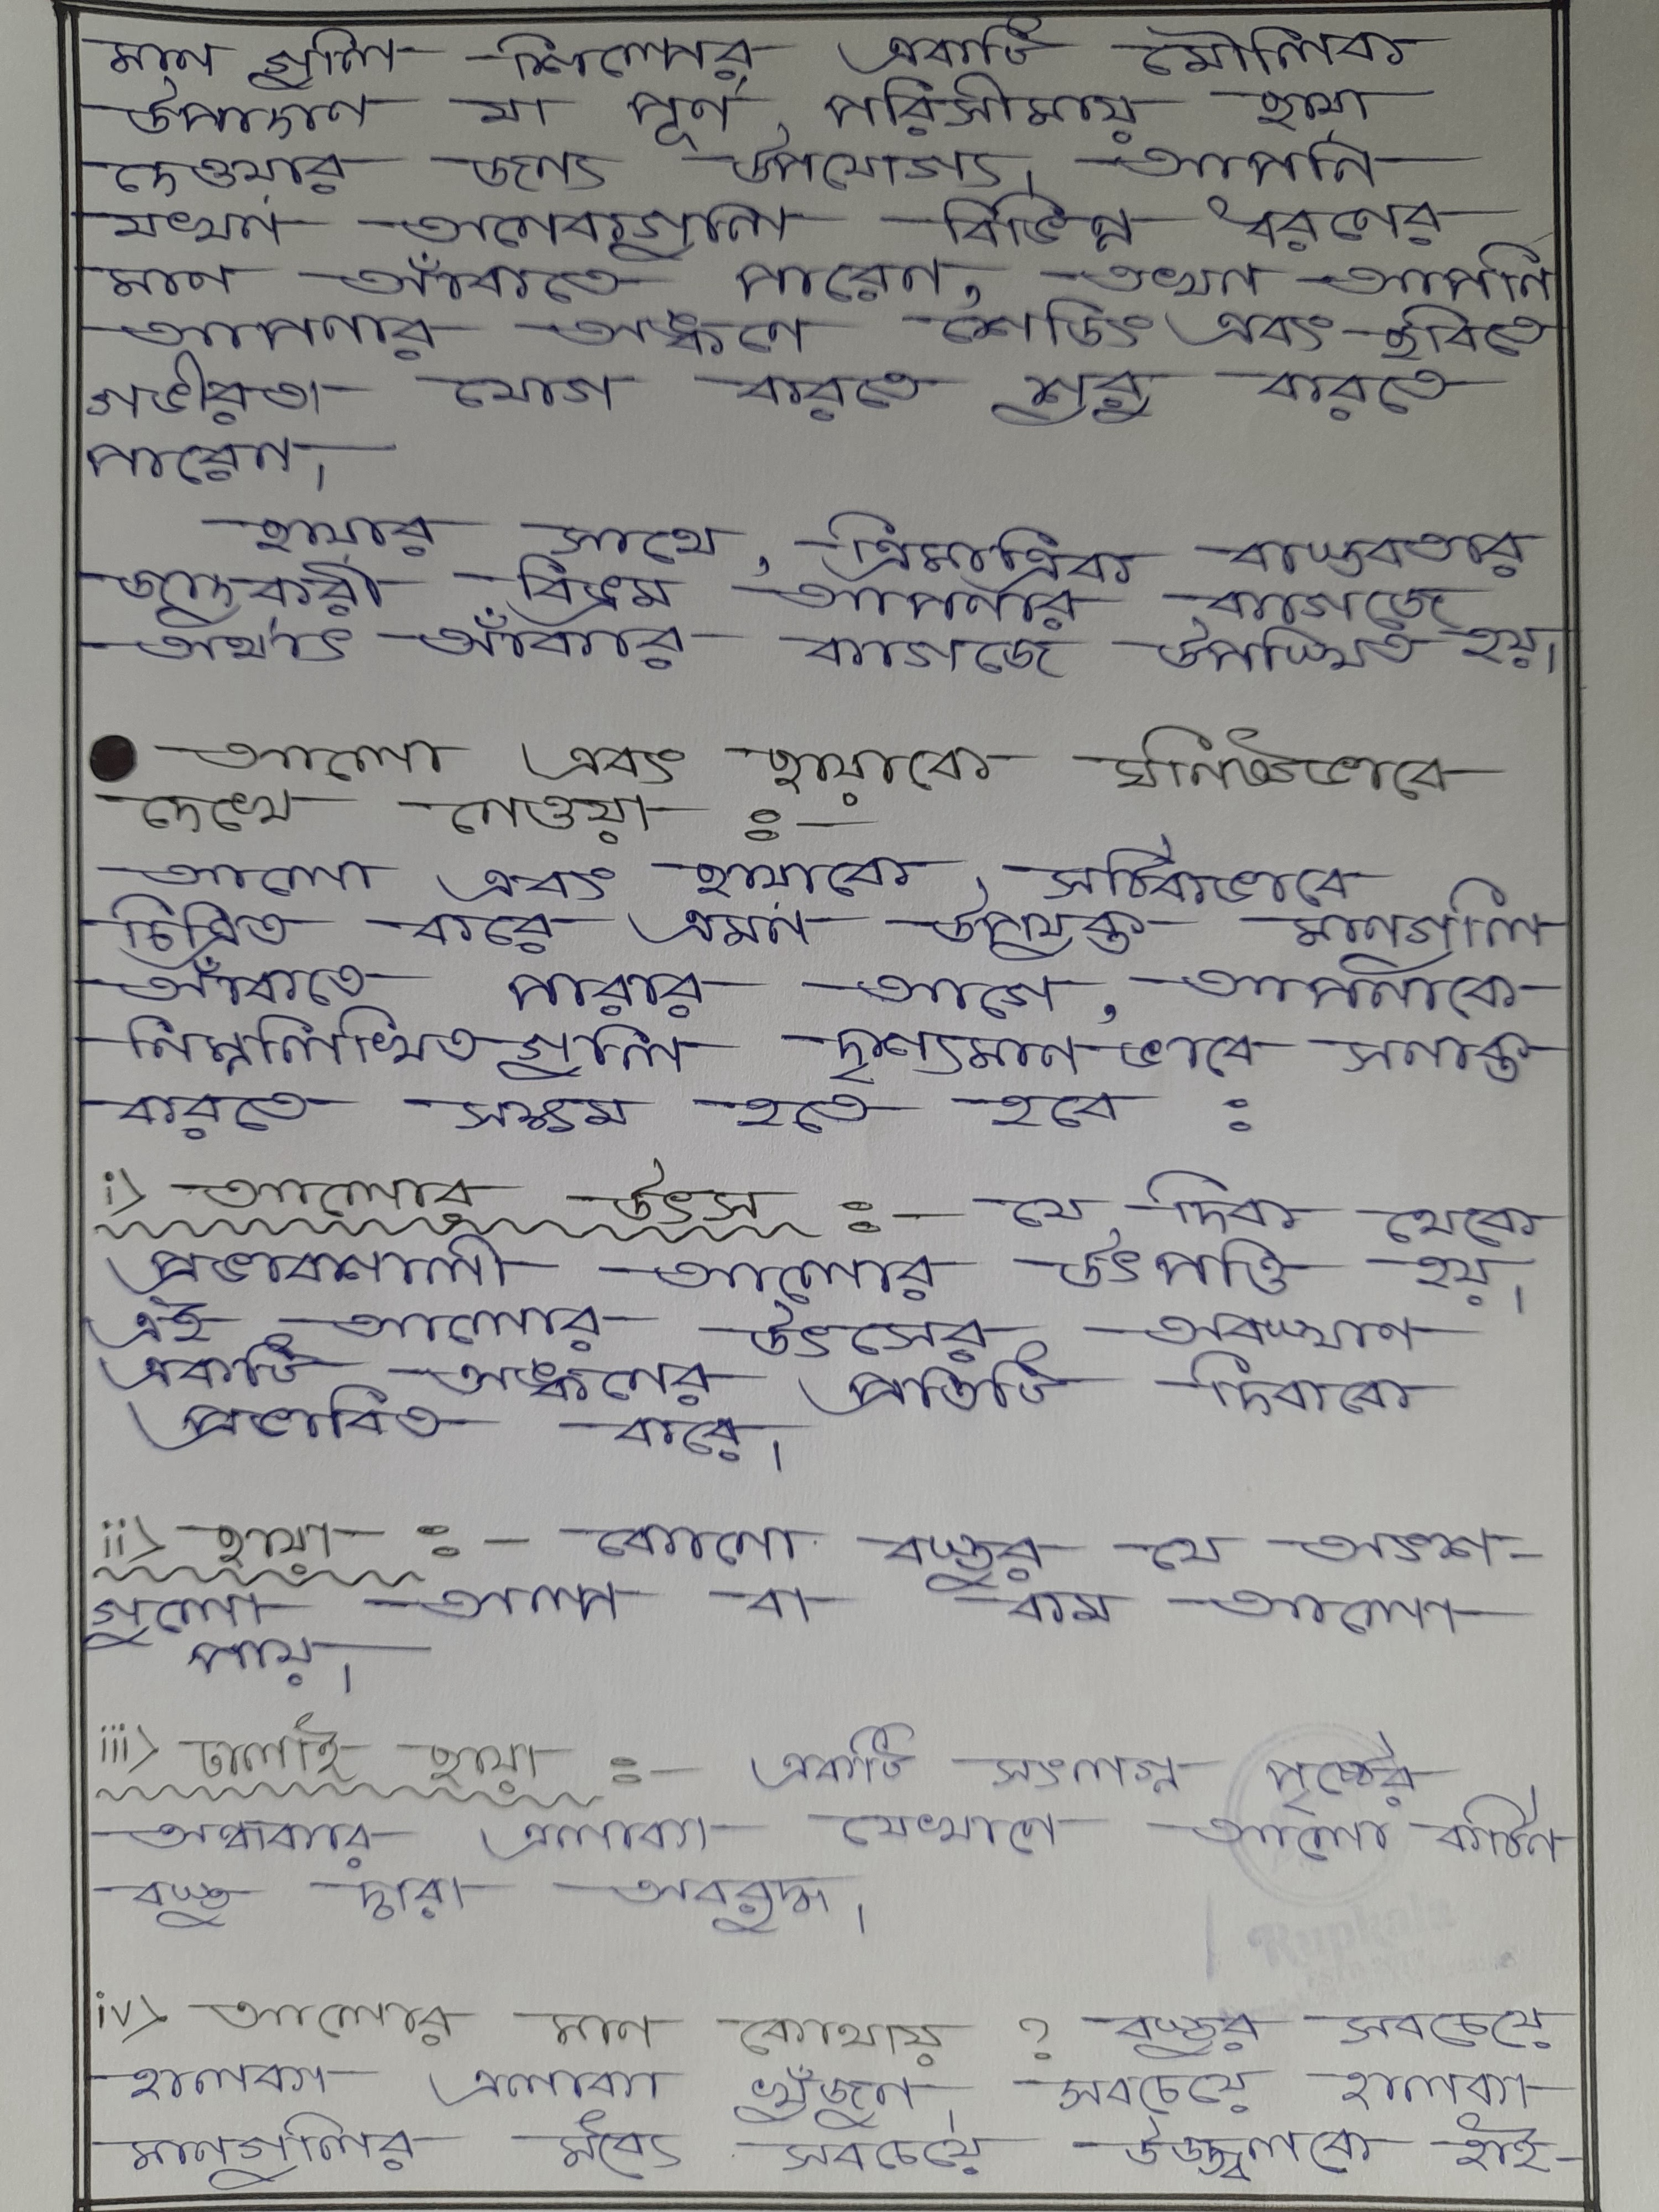 মান গুলি শিল্পের একটি মৌলিক
উপাদান যা পূর্ণ পরিসীমায় ছায়া
দেওয়ার জন্য উপযোগ্য। আপনি
যখন অনেকগুলি বিভিন্ন ধরণের
মান আঁকতে পারেন, তখন আপনি
আপনার অঙ্কনে শেডিং এবং ছবিতে
গভীরতা যোগ করতে শুরু করতে
পারেন।
ছায়ার সাথে, ত্রিমাত্রিক বাস্তবতার
জাদুকরী বিভ্রম আপনার কাগজে
অর্থাৎ আঁকার কাগজে উপস্থিত হয়।
● আলো এবং ছায়াকে ঘনিষ্ঠভাবে
দেখে নেওয়া :—
আলো এবং ছায়াকে সঠিকভাবে
চিত্রিত করে এমন উপযুক্ত মানগুলি
আঁকতে পারার আগে, আপনাকে
নিম্নলিখিতগুলি দৃশ্যমান ভাবে সনাক্ত
করতে সক্ষম হতে হবে :
i> আলোর উৎস :— যে দিক থেকে
প্রভাবশালী আলোর উৎপত্তি হয়।
এই আলোর উৎসের অবস্থান
একটি অঙ্কনের প্রতিটি দিককে
প্রভাবিত করে।
ii> ছায়া :— কোনো বস্তুর যে অংশ-
গুলো অল্প বা কম আলো
পায়।
iii> ঢালাই ছায়া :— একটি সংলগ্ন পৃষ্ঠের
অন্ধকার এলাকা যেখানে আলো কঠিন
বস্তু দ্বারা অবরুদ্ধ।
iv> আলোর মান কোথায় ? বস্তুর সবচেয়ে
হালকা এলাকা খুঁজুন। সবচেয়ে হালকা
মানগুলির মধ্যে সবচেয়ে উজ্জ্বলকে হাই-